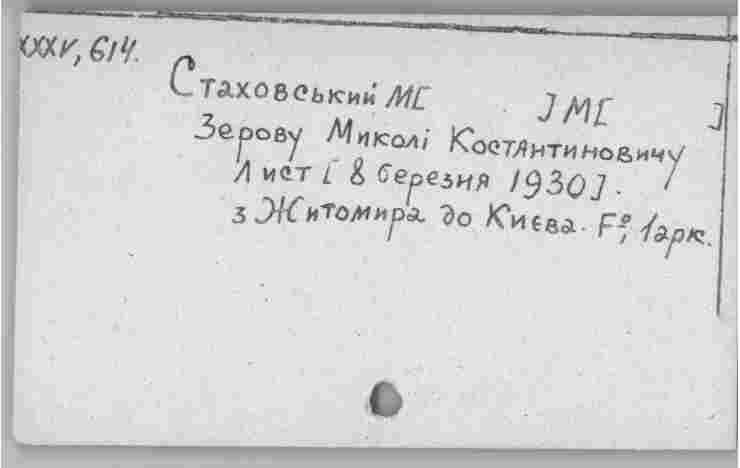 XXXV, 614.
Стаховський М[ ] М[ ]
Зерову Миколі Костянтиновичу
Лист [8 березня 1930].
з Житомира до Києва. F°, 1 арк.